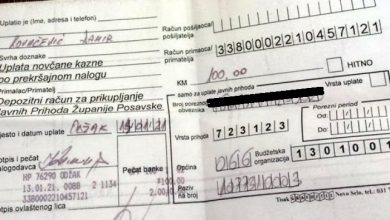 Uplatio je (Ime, adresa i telefon)
KOVAČEVIĆ DAMIR
Svrha doznake
Uplata novčane kazne
po prekršajnom nalogu
Depozitni račun za prikupljanje
Javnih Prihoda Županije Posavske
Mjesto i datum uplate
13/01/21
Potpis i pečat
nalogodavca
Pečat banke
HP 76290 ODŽAK
13.01.21. 008B 2 1134
3380002210457121
*100,00
2,00
Potpis ovlaštenog lica
Račun pošiljaoca/
pošiljatelja
Račun primaoca/
primatelja
3380002210457121
KM
100,00
HITNO
samo za uplate javnih prihoda
Broj poreznog
obveznika
Vrsta uplate
Vrsta prihoda
723123
Porezni period
Općina
066
Budžetska
organizacija
1301001
Poziv
na broj
Novo Selo,